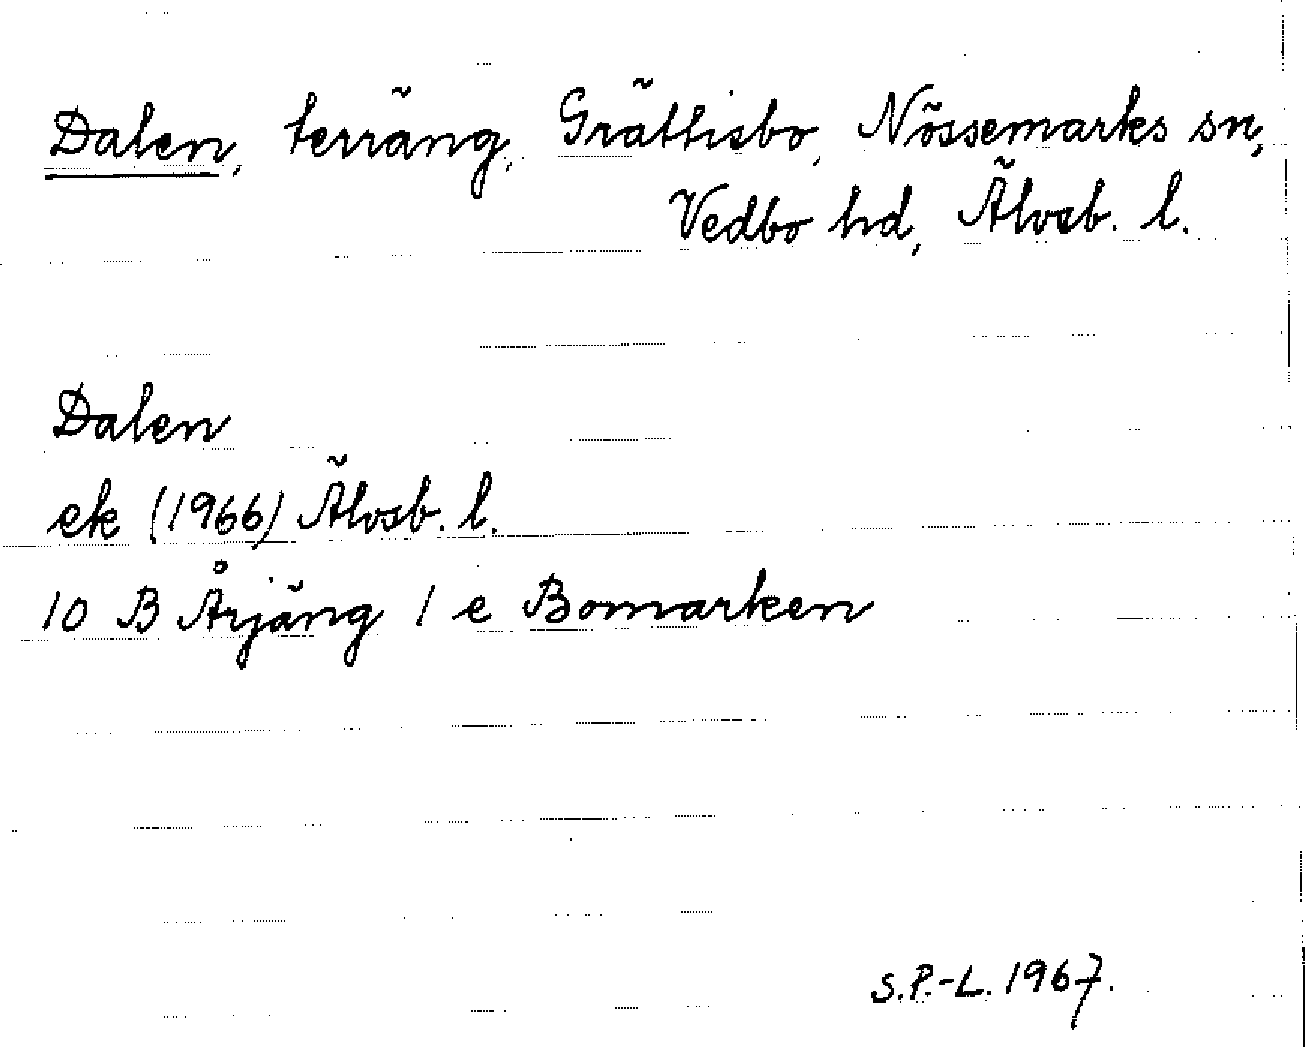 Dalen, terräng, Grättisbo, Nössemarks sn,
Vedbo hd, Älvsb. l.
Dalen
ek (1966) Älvsb. l.
10 B Årjäng 1 e Bomarken
S.P.-L. 1967.